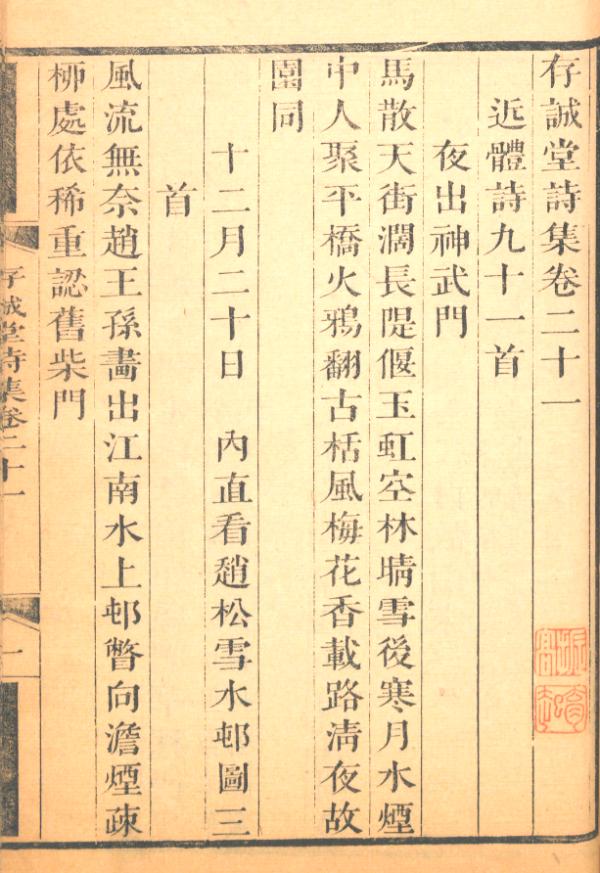 存誠堂詩集卷二十一
近體詩九十一首
夜出神武門
馬散天街濶長隄偃玉虹空林晴雪後寒月水煙
中人聚平橋火鴉翻古栝風梅花香載路淸夜故
園同
十二月二十日　內直看趙松雪水邨圖三
首
風流無奈趙王孫畵出江南水上邨瞥向澹煙疎
柳處依稀重認舊柴門
存誠堂詩集卷二十一
一